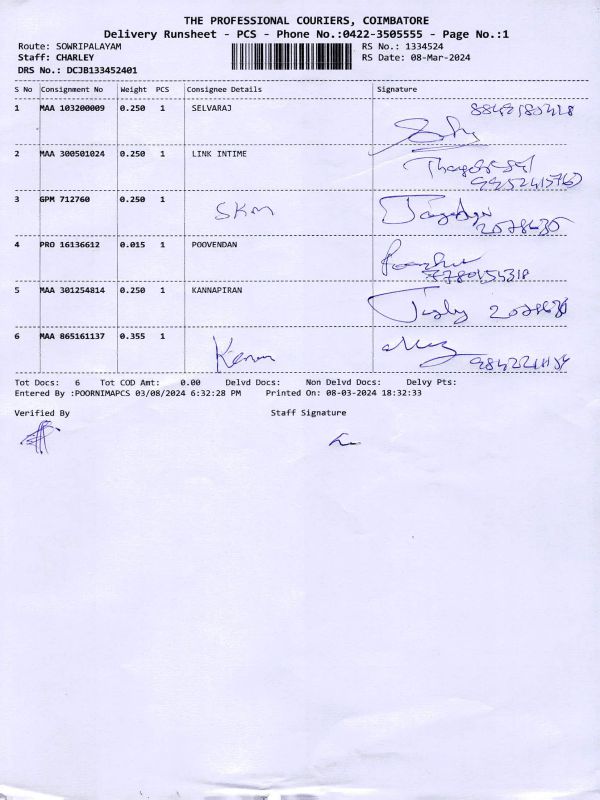 THE PROFESSIONAL COURIERS, COIMBATORE
Delivery Runsheet - PCS - Phone No.:0422-3505555 - Page No.:1
Route: SOWRIPALAYAM RS No.: 1334524
Staff: CHARLEY RS Date: 08-Mar-2024
DRS No.: DCJB133452401
S No Consignment No Weight PCS Consignee Details Signature
1 MAA 103200009 0.250 1 SELVARAJ
2 MAA 300501024 0.250 1 LINK INTIME
3 GPM 712760 0.250 1 SKM
4 PRO 16136612 0.015 1 POOVENDAN
5 MAA 301254814 0.250 1 KANNAPIRAN
6 MAA 865161137 0.355 1
Tot Docs: 6 Tot COD Amt: 0.00 Delvd Docs: Non Delvd Docs: Delvy Pts:
Entered By :POORNIMAPCS 03/08/2024 6:32:28 PM Printed On: 08-03-2024 18:32:33
Verified By Staff Signature